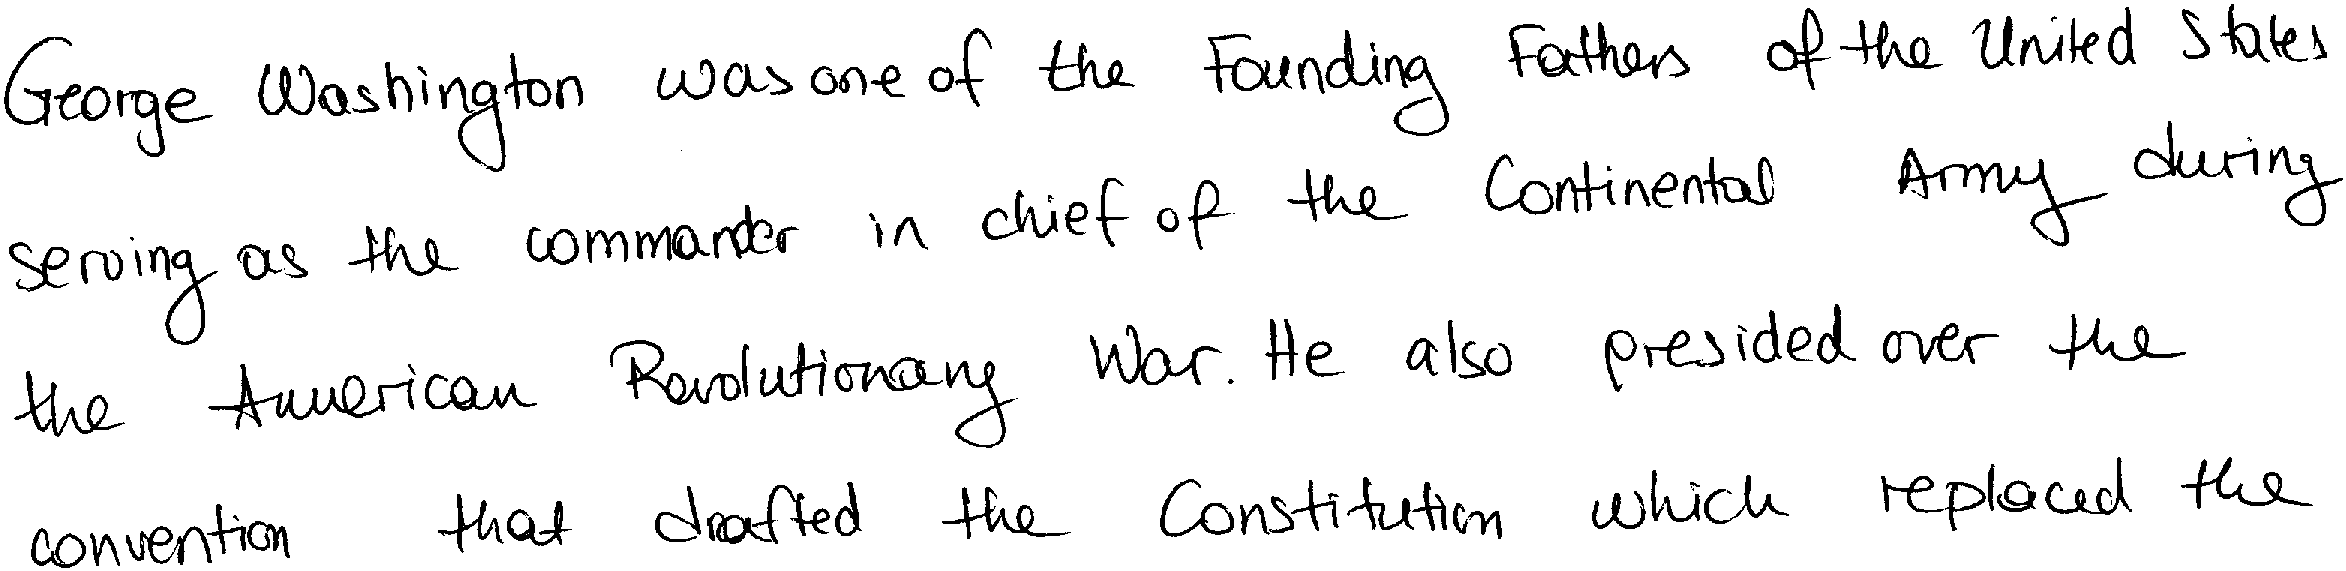 George Washington was one of the Founding Fathers of the United States
serving as the commander in chief of the Continental Army during
the American Revolutionary War. He also presided over the
convention that drafted the Constitution which replaced the